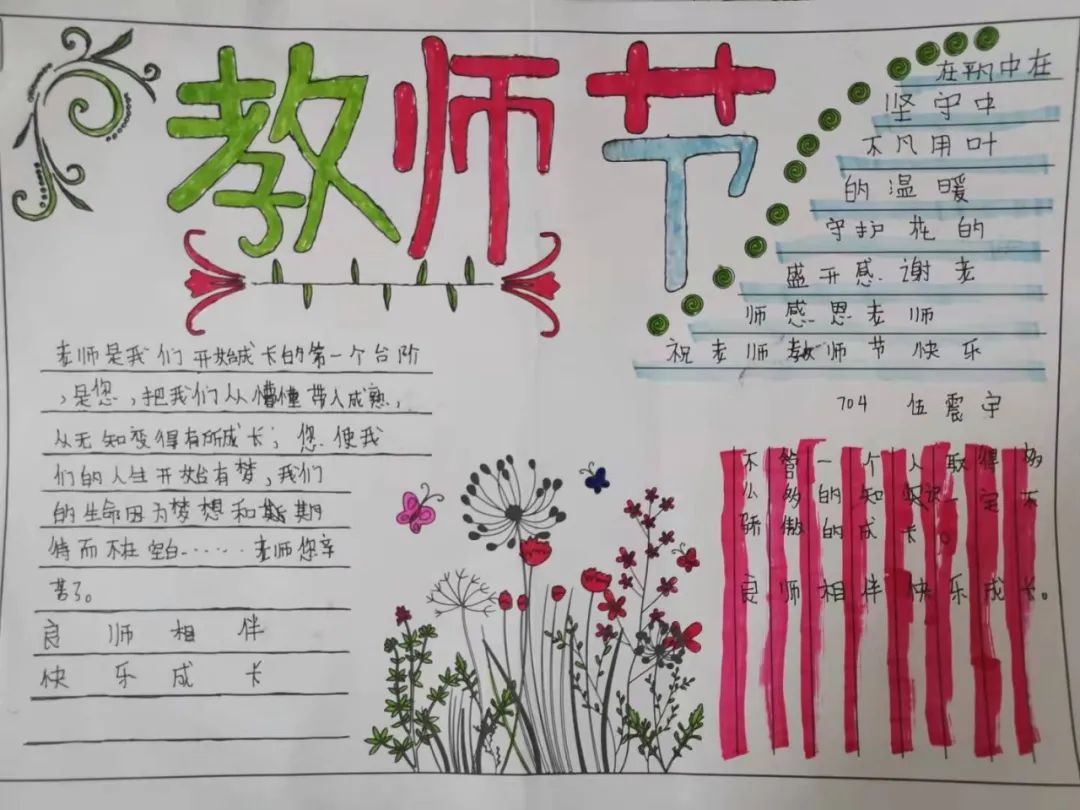 教师节
在平凡中在
坚守中
不凡用叶
的温暖
守护花的
盛开感谢老
师感恩老师
祝老师教师节快乐
704 伍震宇
老师是我们开始成长的第一个台阶
，是您，把我们从懵懂带入成熟，
从无知变得有所成长；您使我
们的人生开始有梦，我们
的生命因为梦想和期
待而不在空白……老师您辛
苦了。
良师相伴
快乐成长
不管一个人取得多
么多的知识一定不
骄傲的成长
良师相伴快乐成长。